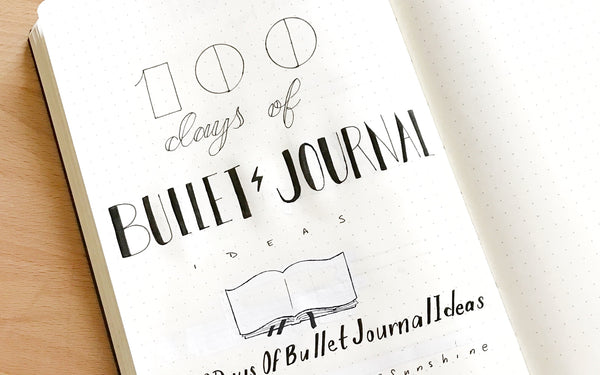 100
days of
BULLET JOURNAL
IDEAS
Days Of Bullet Journal Ideas
sunshine